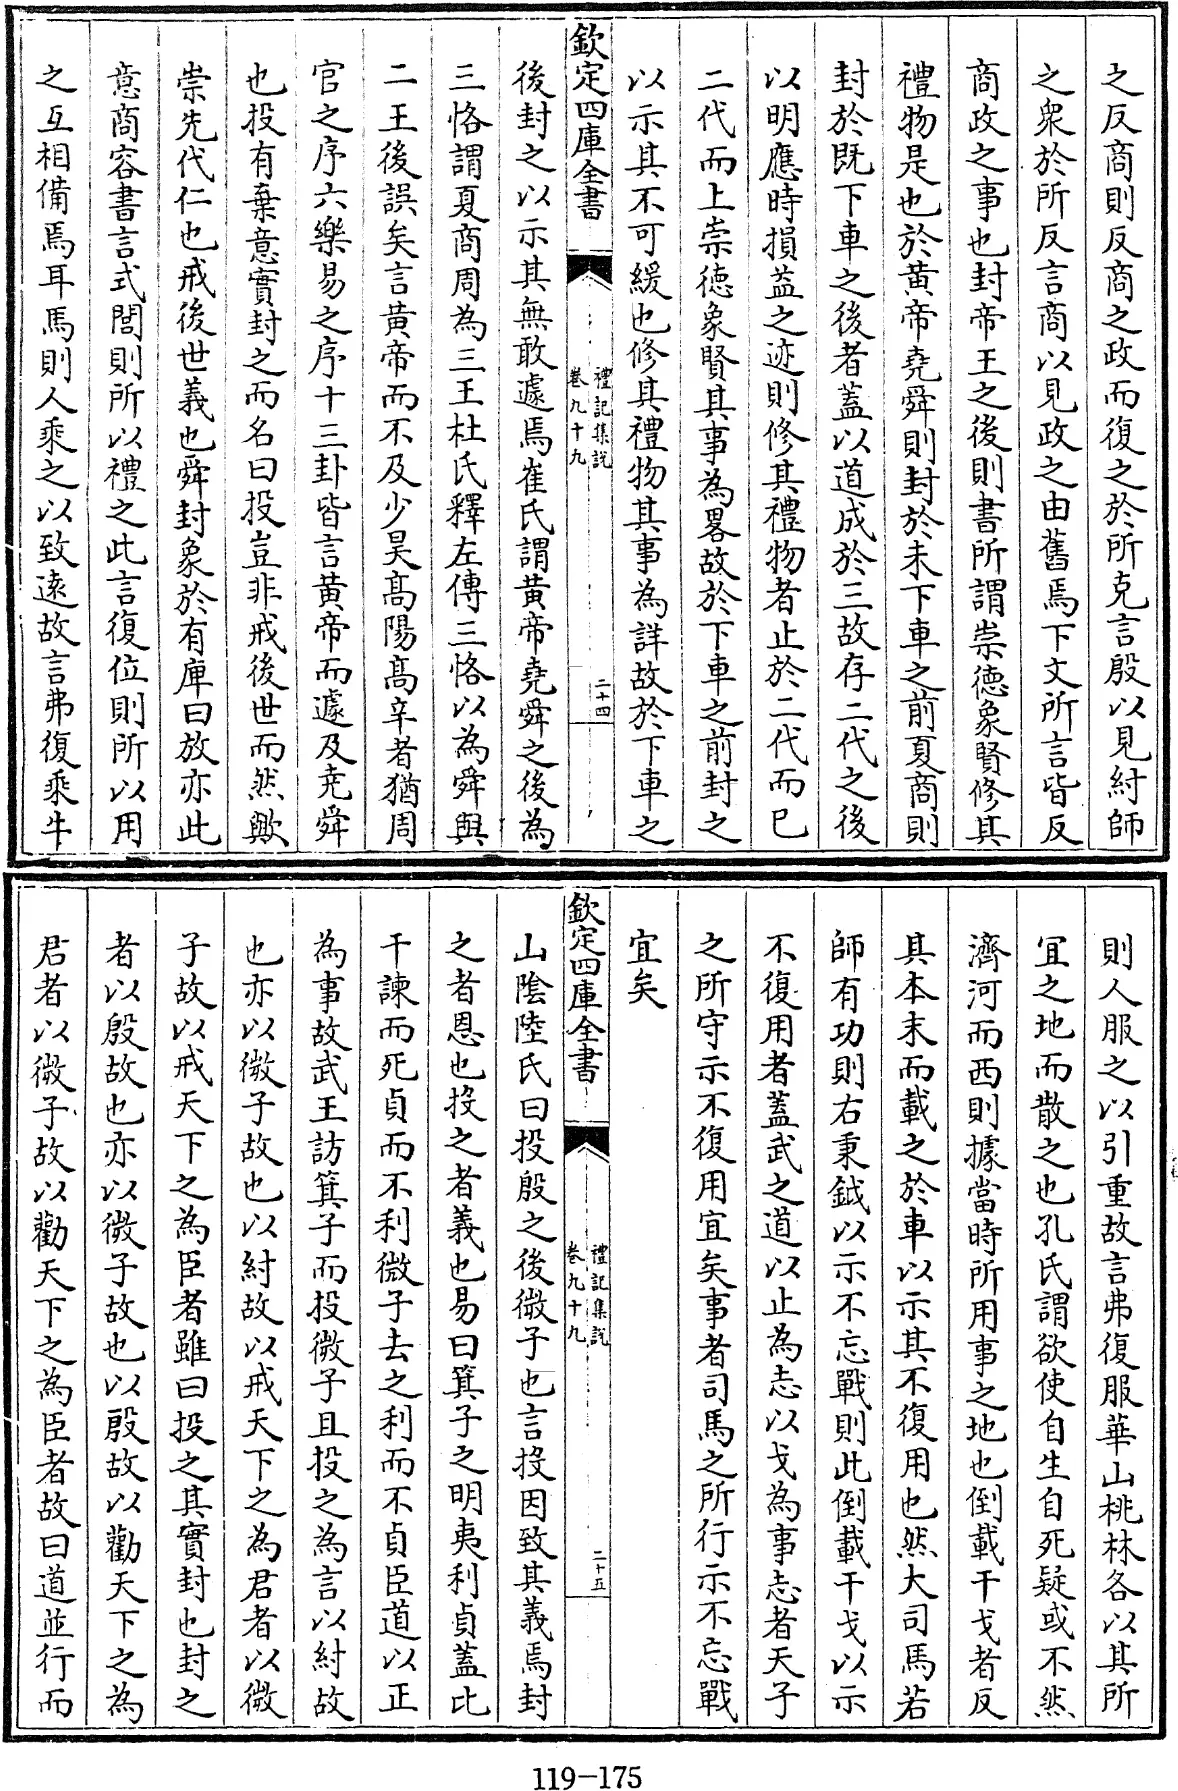 之反商則反商之政而復之於所克言殷以見紂師
之衆於所反言商以見政之由舊焉下文所言皆反
商政之事也封帝王之後則書所謂崇德象賢修其
禮物是也於黄帝堯舜則封於未下車之前夏商則
封於既下車之後者蓋以道成於三故存二代之後
以明應時損益之迹則修其禮物者止於二代而已
二代而上崇德象賢其事為畧故於下車之前封之
以示其不可緩也修其禮物其事為詳故於下車之
欽定四庫全書
禮記集説
卷九十九
二十四
後封之以示其無敢遽焉崔氏謂黄帝堯舜之後為
三恪謂夏商周為三王杜氏釋左傳三恪以為舜與
二王後誤矣言黄帝而不及少昊髙陽髙辛者猶周
官之序六樂易之序十三卦皆言黄帝而遽及堯舜
也投有棄意實封之而名曰投豈非戒後世而然歟
崇先代仁也戒後世義也舜封象於有庳曰放亦此
意商容書言式閭則所以禮之此言復位則所以用
之互相備焉耳馬則人乘之以致逺故言弗復乘牛
則人服之以引重故言弗復服華山桃林各以其所
冝之地而散之也孔氏謂欲使自生自死疑或不然
濟河而西則據當時所用事之地也倒載干戈者反
其本末而載之於車以示其不復用也然大司馬若
師有功則右秉鉞以示不忘戰則此倒載干戈以示
不復用者蓋武之道以止為志以戈為事志者天子
之所守示不復用宜矣事者司馬之所行示不忘戰
宜矣
欽定四庫全書
禮記集説
卷九十九
二十五
山陰陸氏曰投殷之後微子也言投因致其義焉封
之者恩也投之者義也易曰箕子之明夷利貞蓋比
干諫而死貞而不利微子去之利而不貞臣道以正
為事故武王訪箕子而投微子且投之為言以紂故
也亦以微子故也以紂故以戒天下之為君者以微
子故以戒天下之為臣者雖曰投之其實封也封之
者以殷故也亦以微子故也以殷故以勸天下之為
君者以微子故以勸天下之為臣者故曰道並行而
119-175